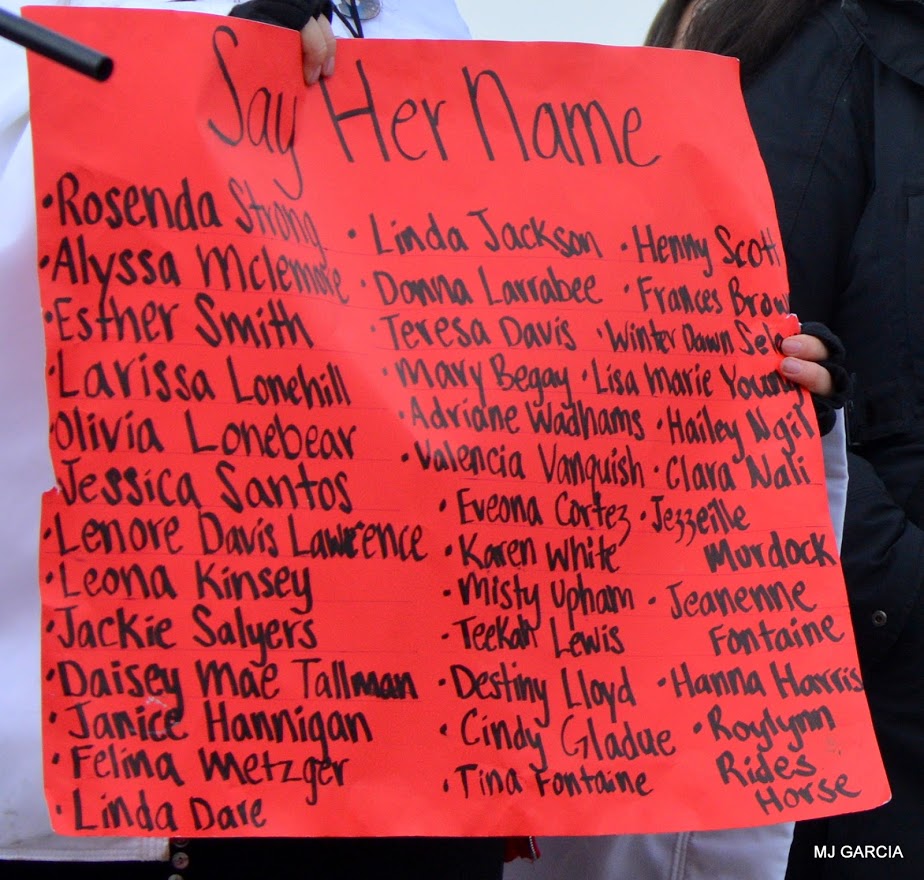 Say Her Name
• Rosenda Strong
• Alyssa Mclemore
• Esther Smith
• Larissa Lonehill
• Olivia Lonebear
• Jessica Santos
• Lenore Davis Lawrence
• Leona Kinsey
• Jackie Salyers
• Daisey Mae Tallman
• Janice Hannigan
• Felina Metzger
• Linda Dare
• Linda Jackson
• Donna Larrabee
• Teresa Davis
• Mary Begay
• Adriane Wadhams
• Valencia Vanquish
• Eveona Cortez
• Karen White
• Misty Upham
• Teekah Lewis
• Destiny Lloyd
• Cindy Gladue
• Tina Fontaine
• Henny Scott
• Frances Brown
• Winter Dawn
• Lisa Marie Young
• Hailey
• Clara Nali
• Jezzeille
Murdock
• Jeanenne
Fontaine
• Hanna Harris
• Roylynn
Rides
Horse
MJ GARCIA